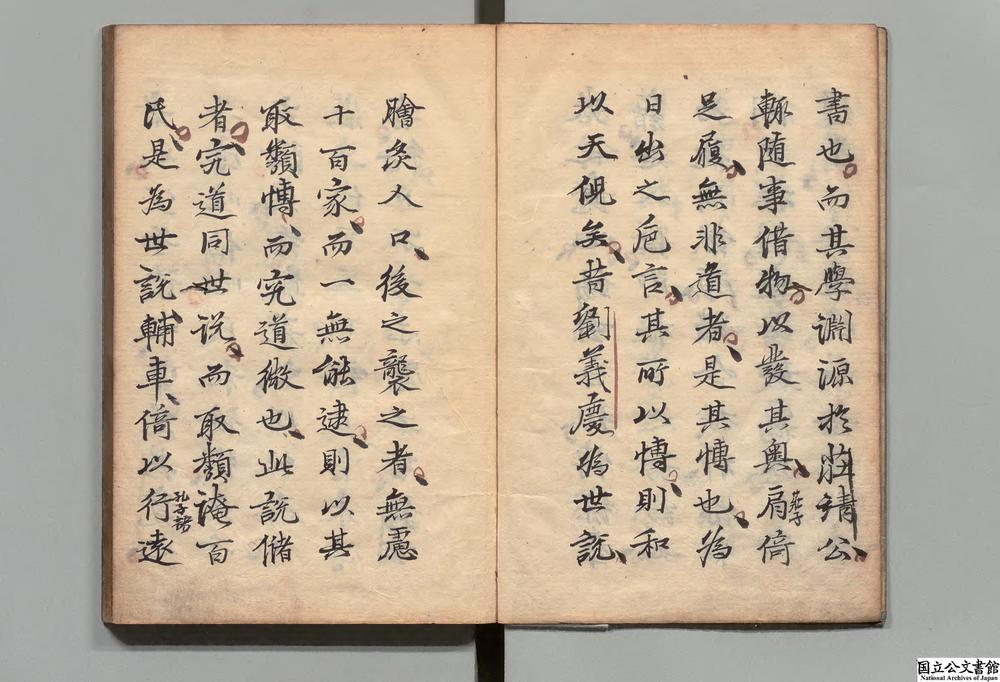 書也而其學淵源於莊靖公
輙随事借物以發其奥扃倚
莊子
足履無非道者是其慱也為
日出之巵言其所以慱則和
以天倪矣昔劉義慶為世說
膾炙人口後之襲之者無慮
十百家而一無能逮則以其
取類慱而究道微也此説儲
者究道同世説而取類淹百
氏是為世説輔車倚以行遠
孔子語
国立公文書館
National Archives of Japan